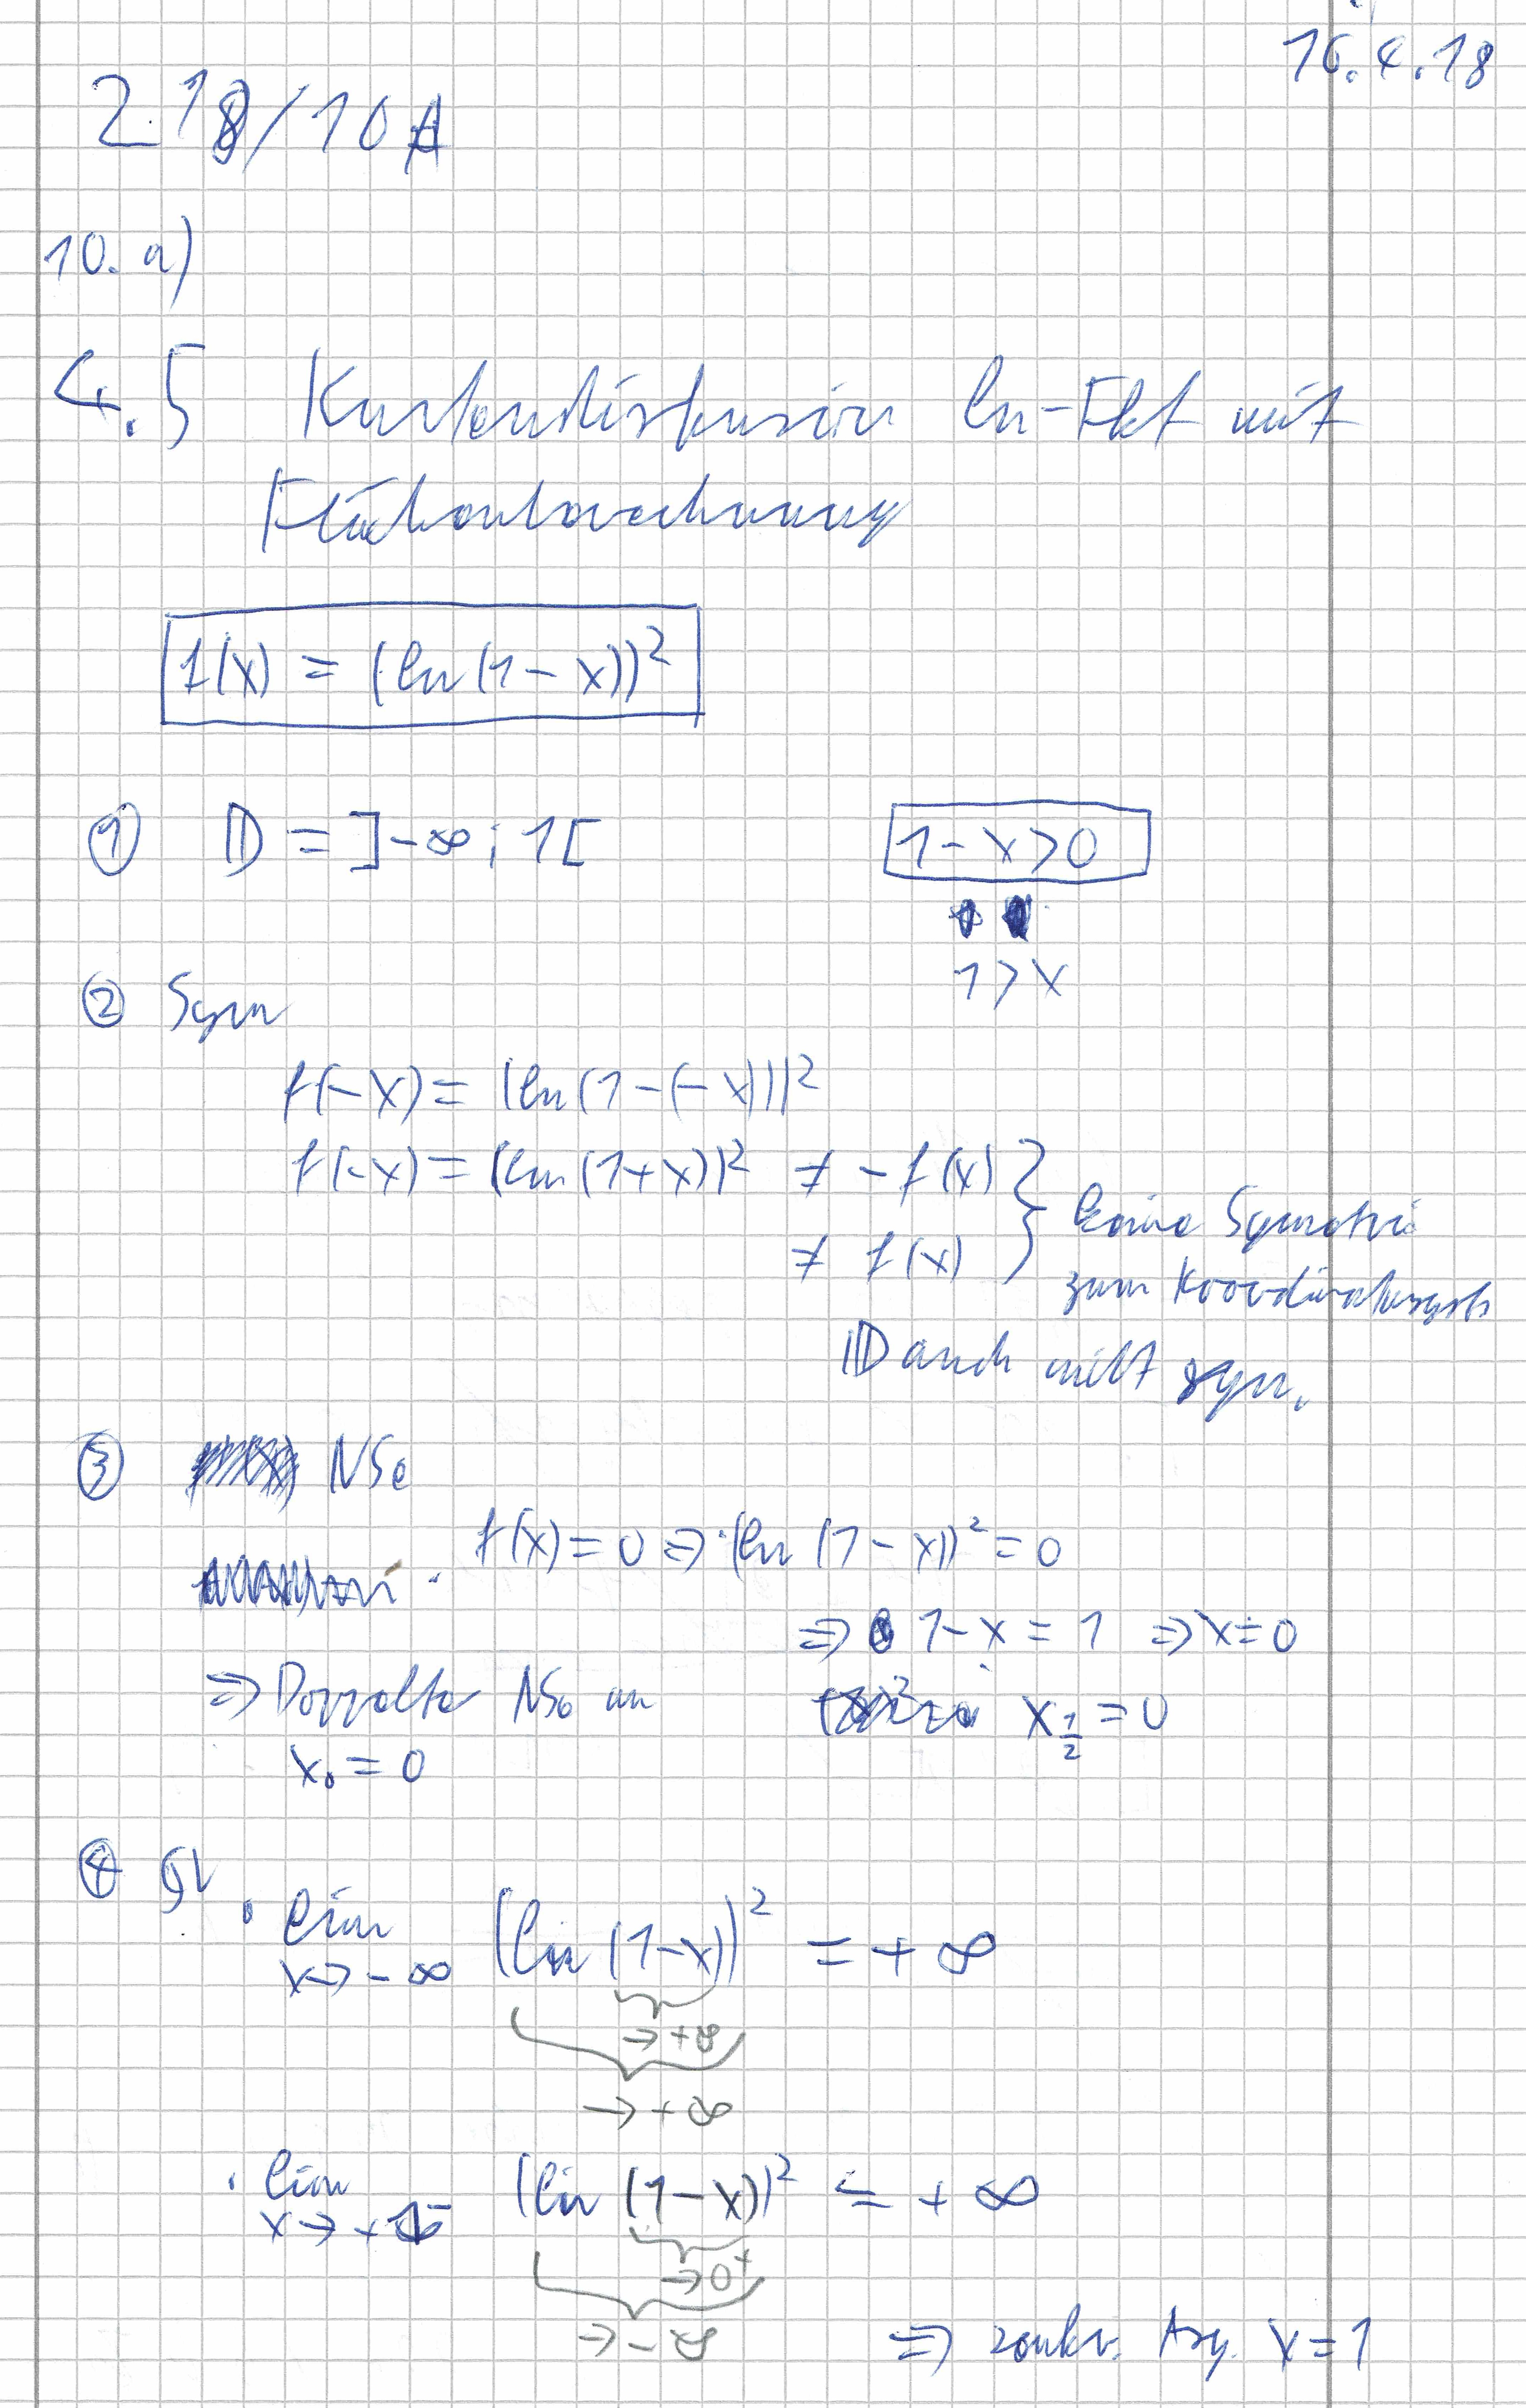 16.4.18
218/10A
10. a)
4.5 Kurvendiskussion ln-Fkt mit
Flächenberechnung
f(x) = (ln(1-x))²
① 𝔻 = ]-∞; 1[ 1-x>0
1>x
② Sym
f(-x) = (ln(1-(-x)))²
f(-x) = (ln(1+x))² ≠ -f(x)
≠ f(x) } keine Symetrie
zum Koordinatensyst
𝔻 auch nicht sym.
③ NSt
f(x) = 0 ⇒ (ln(1-x))² = 0
⇒ 1-x = 1 ⇒ x=0
⇒ Doppelte NSt an x½ = 0
x₀ = 0
④ GV
• lim x→-∞ (ln(1-x))² = +∞
→+∞
→+∞
• lim x→+1⁻ (ln(1-x))² = +∞
→0⁺
→-∞
⇒ senkr. Asy. x=1